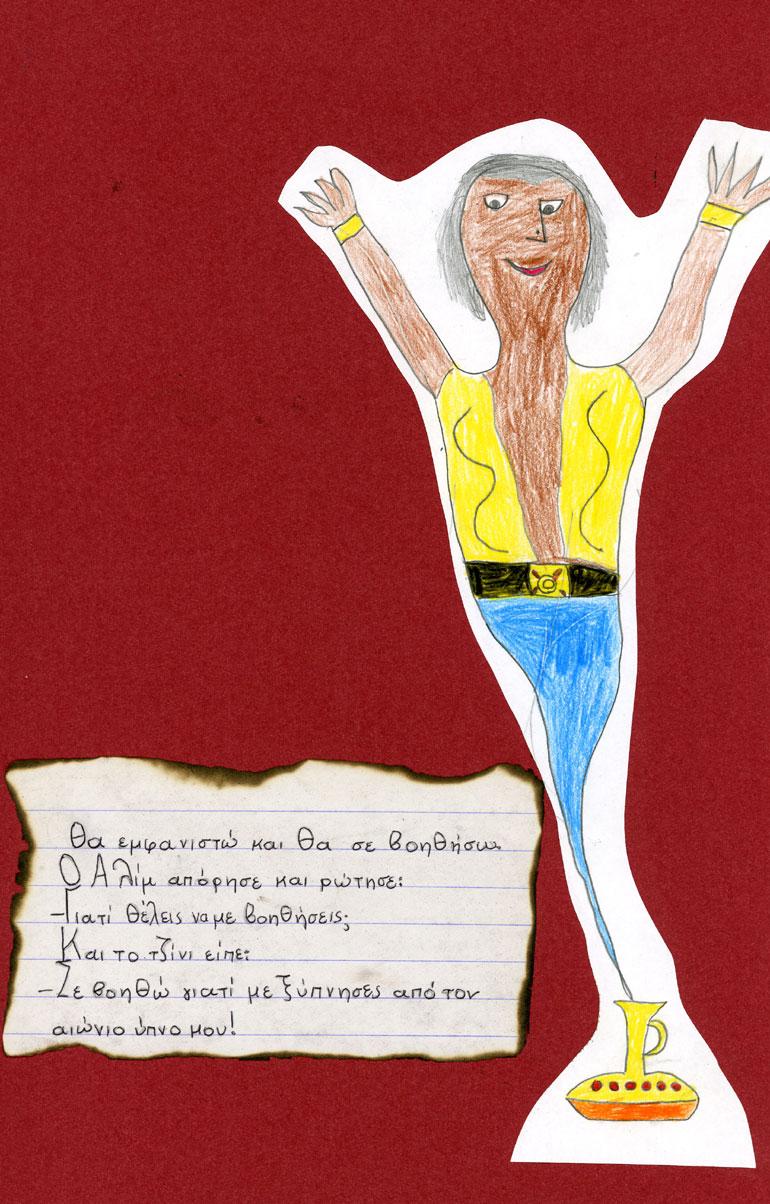 Θα εμφανιστώ και θα σε βοηθήσω.
Ο Αλίμ απόρησε και ρώτησε:
-Γιατί θέλεις να με βοηθήσεις;
Και το τζίνι είπε:
-Σε βοηθώ γιατί με ξύπνησες από τον
αιώνιο ύπνο μου!